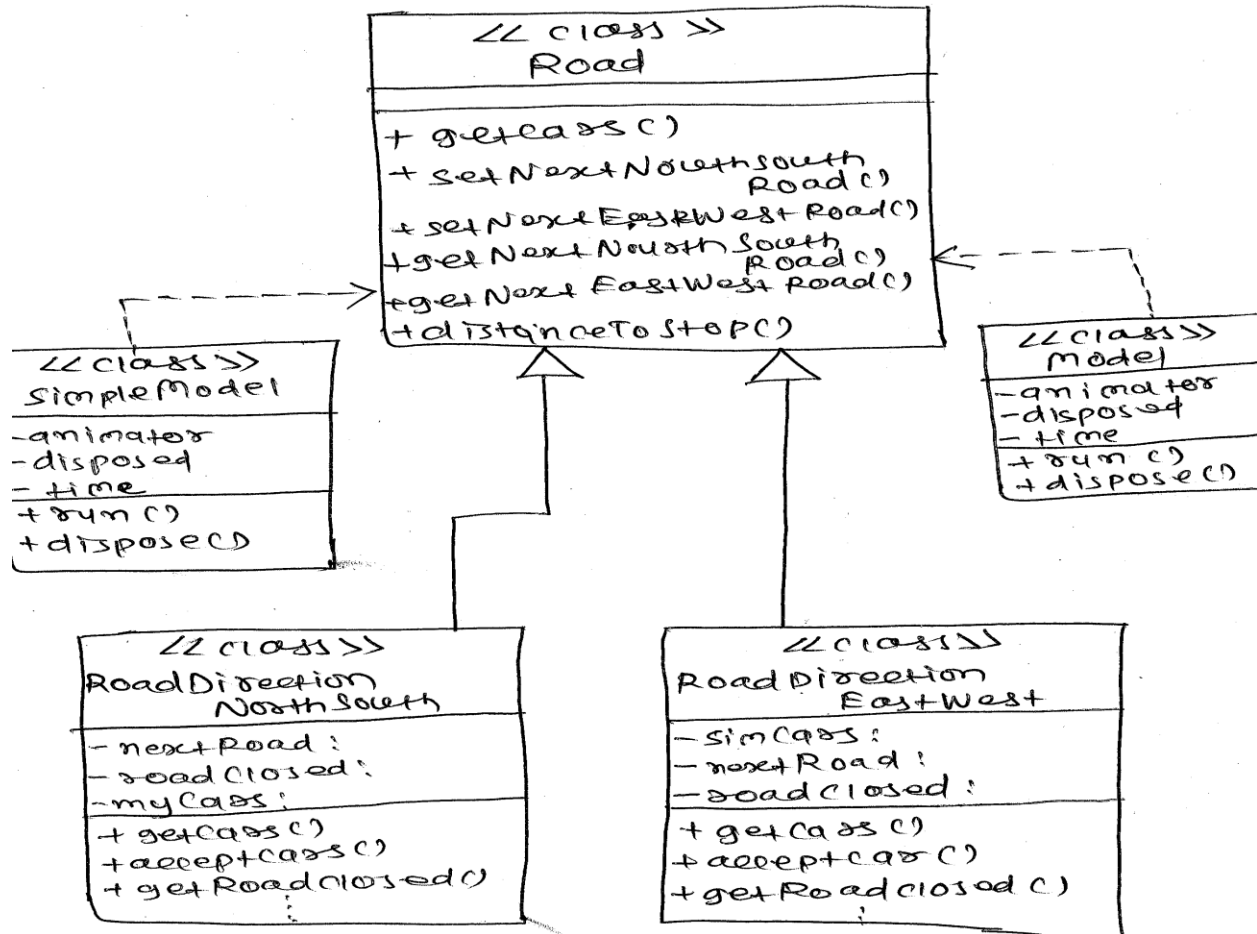 << class >>
Road
+ getcars()
+ setNextNouthsouth
Road()
+ setNextEastWestRoad()
+getNextNouothSouth
Road()
+getNextEastWestRoad()
+distanceToStop()
<<class>>
SimpleModel
-animator
-disposed
- time
+run()
+dispose()
<<class>>
Model
-animator
-disposed
- time
+ run()
+dispose()
<<class>>
RoadDirection
NorthSouth
- nextRoad:
- roadClosed:
-myCars:
+ getCars()
+acceptcars()
+ getRoadClosed()
<<class>>
RoadDirection
EastWest
-simCars:
-nextRoad:
-roadClosed:
+ getCars()
+acceptcar()
+getRoadClosed()